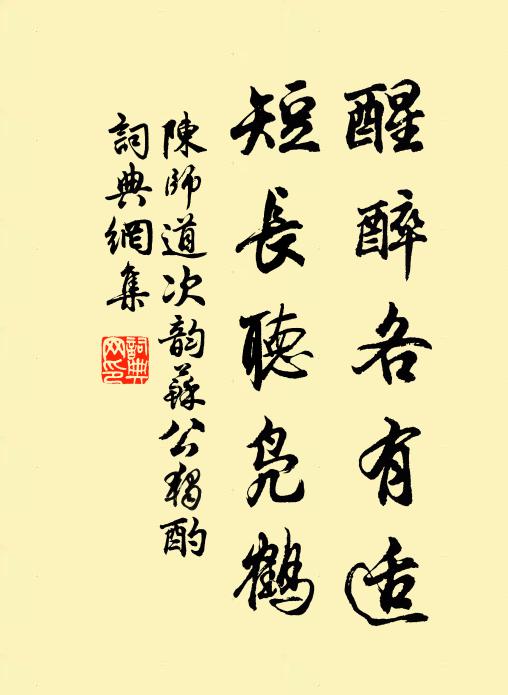 醒醉各有适
短長聽凫鶴
陳師道次韵蘇公獨酌
詞典網集
詞典
网印